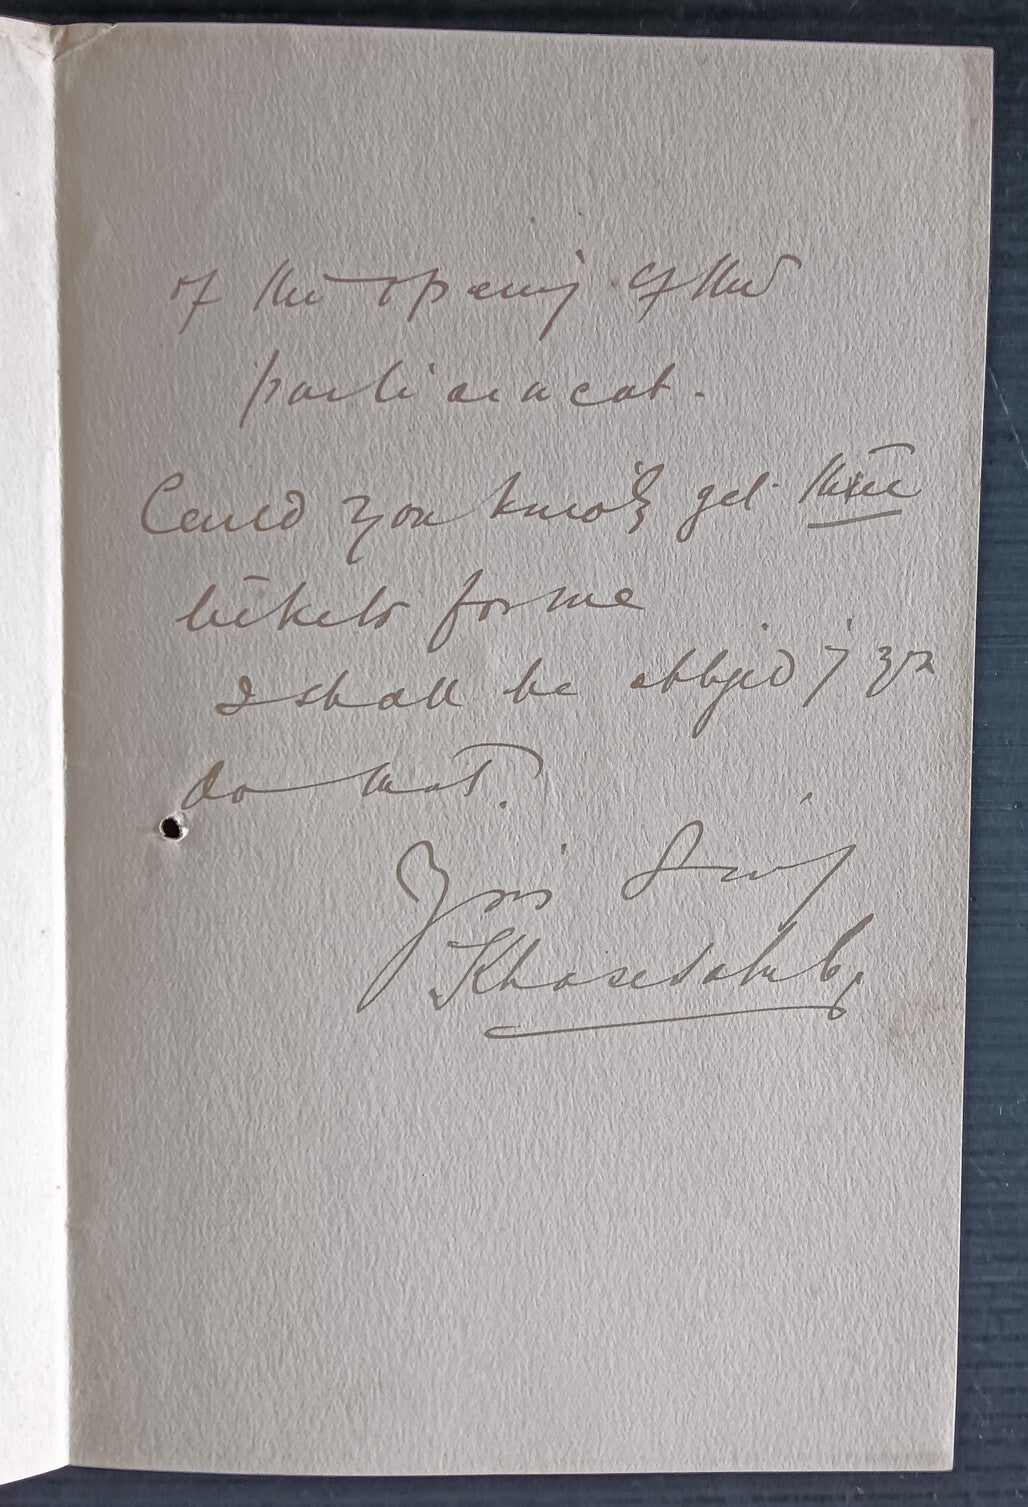 of the opening of the
parliament.
Could you kindly get three
tickets for me
I shall be obliged if you
do that.
Yours Sincly